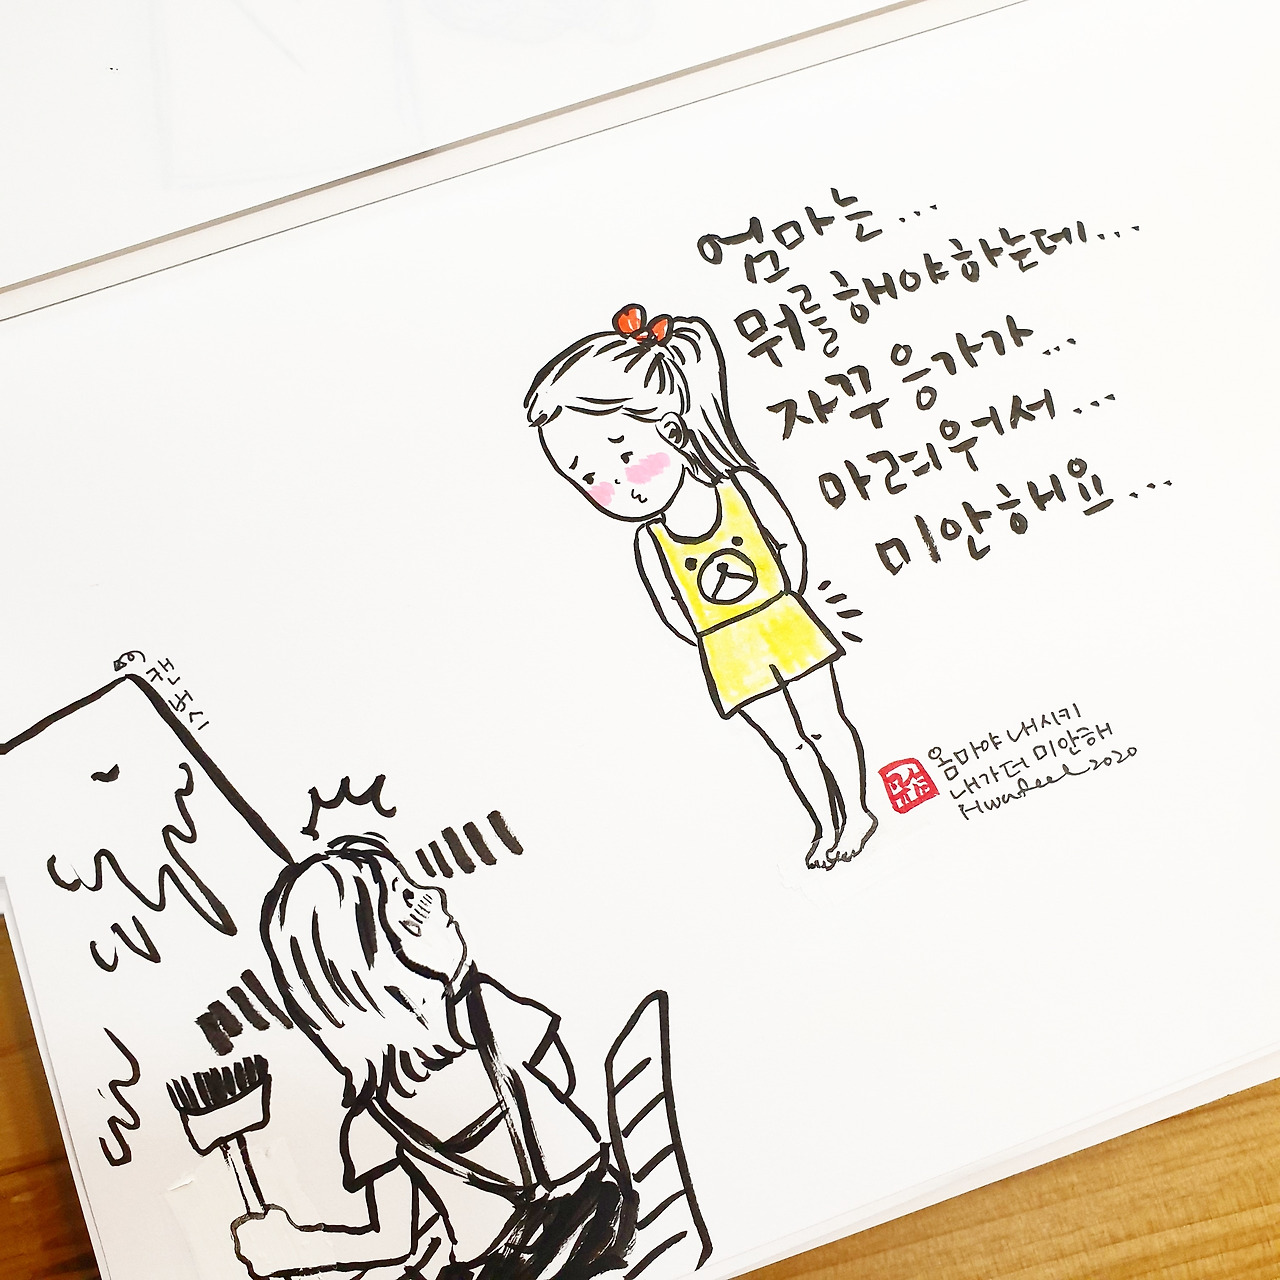 엄마는...
뭐를해야하는데...
자꾸 응가가...
마려워서...
미안해요...
캔버시
옴마야 내시키
내가더 미안해
Hwafeel 2020